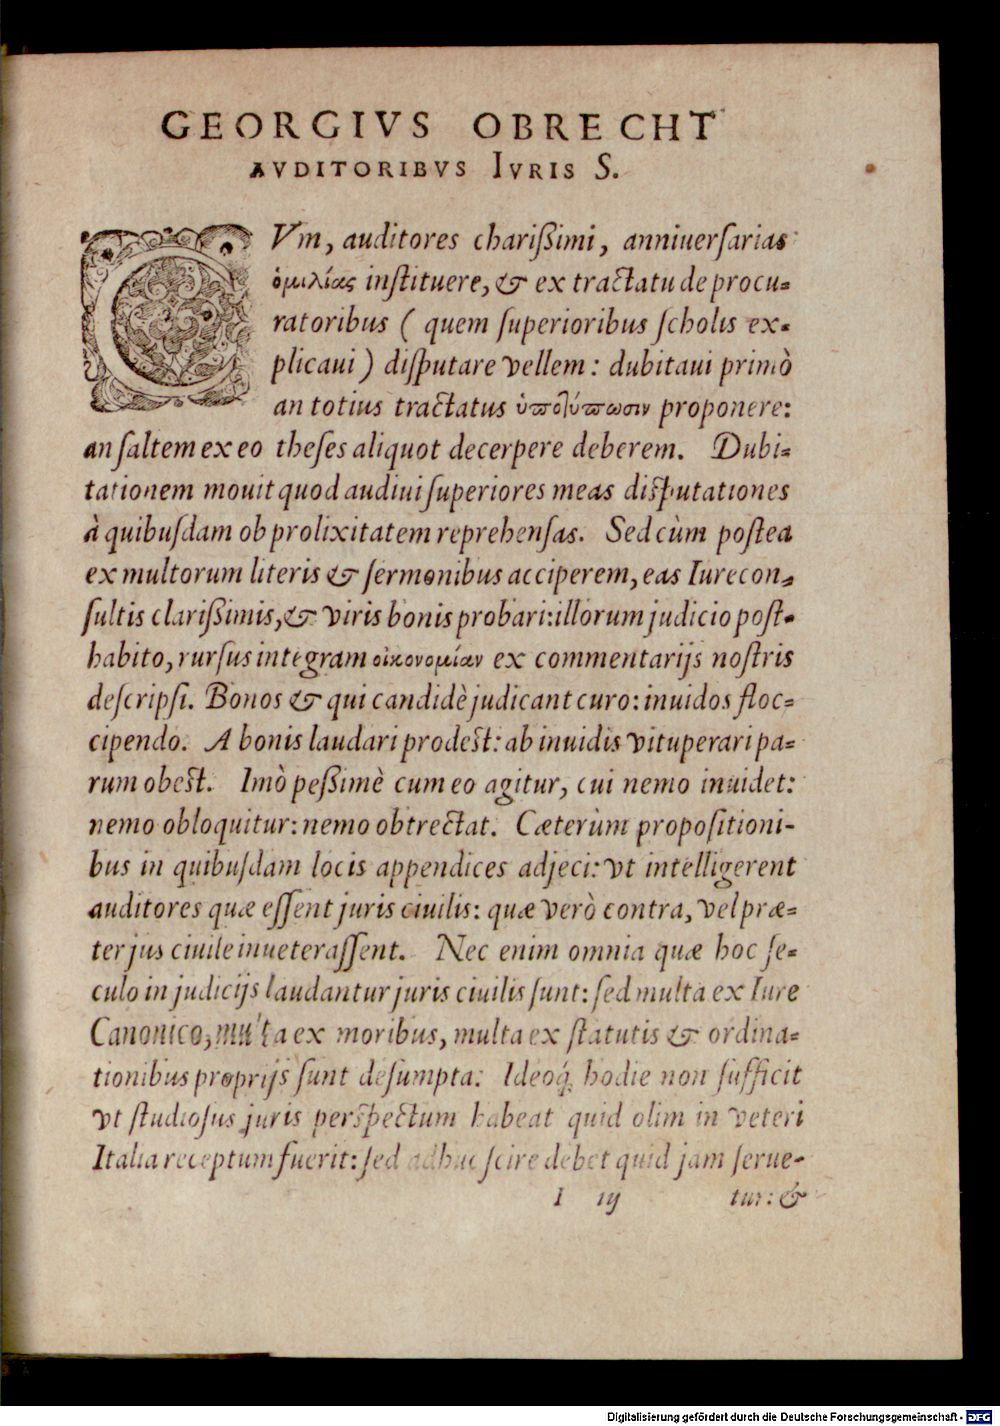 GEORGIVS OBRECHT
AVDITORIBVS IVRIS S.
CVm, auditores charißimi, anniuerſarias
ὁμιλίας inſtituere, & ex tractatu de procu-
ratoribus ( quem ſuperioribus ſcholis ex-
plicaui ) diſputare vellem: dubitaui primò
an totius tractatus ὑποτύπωσιν proponere:
an ſaltem ex eo theſes aliquot decerpere deberem. Dubi-
tationem mouit quod audiui ſuperiores meas diſputationes
à quibuſdam ob prolixitatem reprehenſas. Sed cùm poſtea
ex multorum literis & ſermonibus acciperem, eas Iurecon-
ſultis clarißimis, & viris bonis probari: illorum judicio poſt-
habito, rurſus integram οἰκονομίαν ex commentarijs noſtris
deſcripſi. Bonos & qui candidè judicant curo: inuidos floc-
cipendo. A bonis laudari prodeſt: ab inuidis vituperari pa-
rum obeſt. Imò peßimè cum eo agitur, cui nemo inuidet:
nemo obloquitur: nemo obtrectat. Cæterùm propoſitioni-
bus in quibuſdam locis appendices adjeci: vt intelligerent
auditores quæ eſſent juris ciuilis: quæ verò contra, vel præ-
ter jus ciuile inueteraſſent. Nec enim omnia quæ hoc ſe-
culo in judicijs laudantur juris ciuilis ſunt: ſed multa ex Iure
Canonico, multa ex moribus, multa ex ſtatutis & ordina-
tionibus proprijs ſunt deſumpta. Ideoq́; hodie non ſufficit
vt ſtudioſus juris perſpectum habeat quid olim in veteri
Italia receptum fuerit: ſed adhuc ſcire debet quid jam ſerue-
I iij tur: &
Digitalisierung gefördert durch die Deutsche Forschungsgemeinschaft - DFG